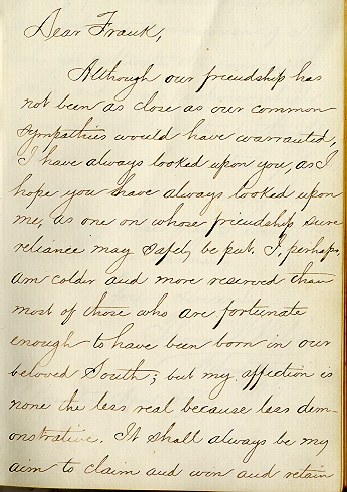 Dear Frank,
Although our friendship has
not been as close as our common
sympathies would have warranted,
I have always looked upon you, as I
hope you have always looked upon
me, as one on whose friendship sure
reliance may safely be put. I, perhaps,
am colder and more reserved than
most of those who are fortunate
enough to have been born in our
beloved South; but my affection is
none the less real because less dem-
onstrative. It shall always be my
aim to claim and win and retain